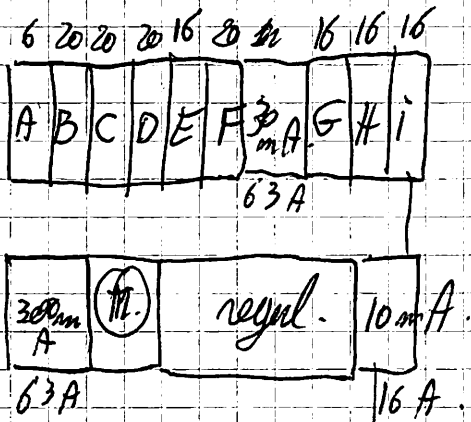 6 20 20 20 16 20 16 16 16
A B C D E F 30 mA. G H i
63A
300m A m. regul. 10 mA.
63A 16A.